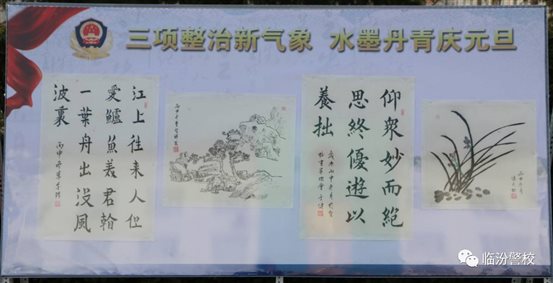 三项整治新气象 水墨丹青庆元旦
江上往来人但
愛鱸魚美君看
一葉舟出没風
波裏
仰衆妙而絕
思終優遊以
養拙
临汾警校